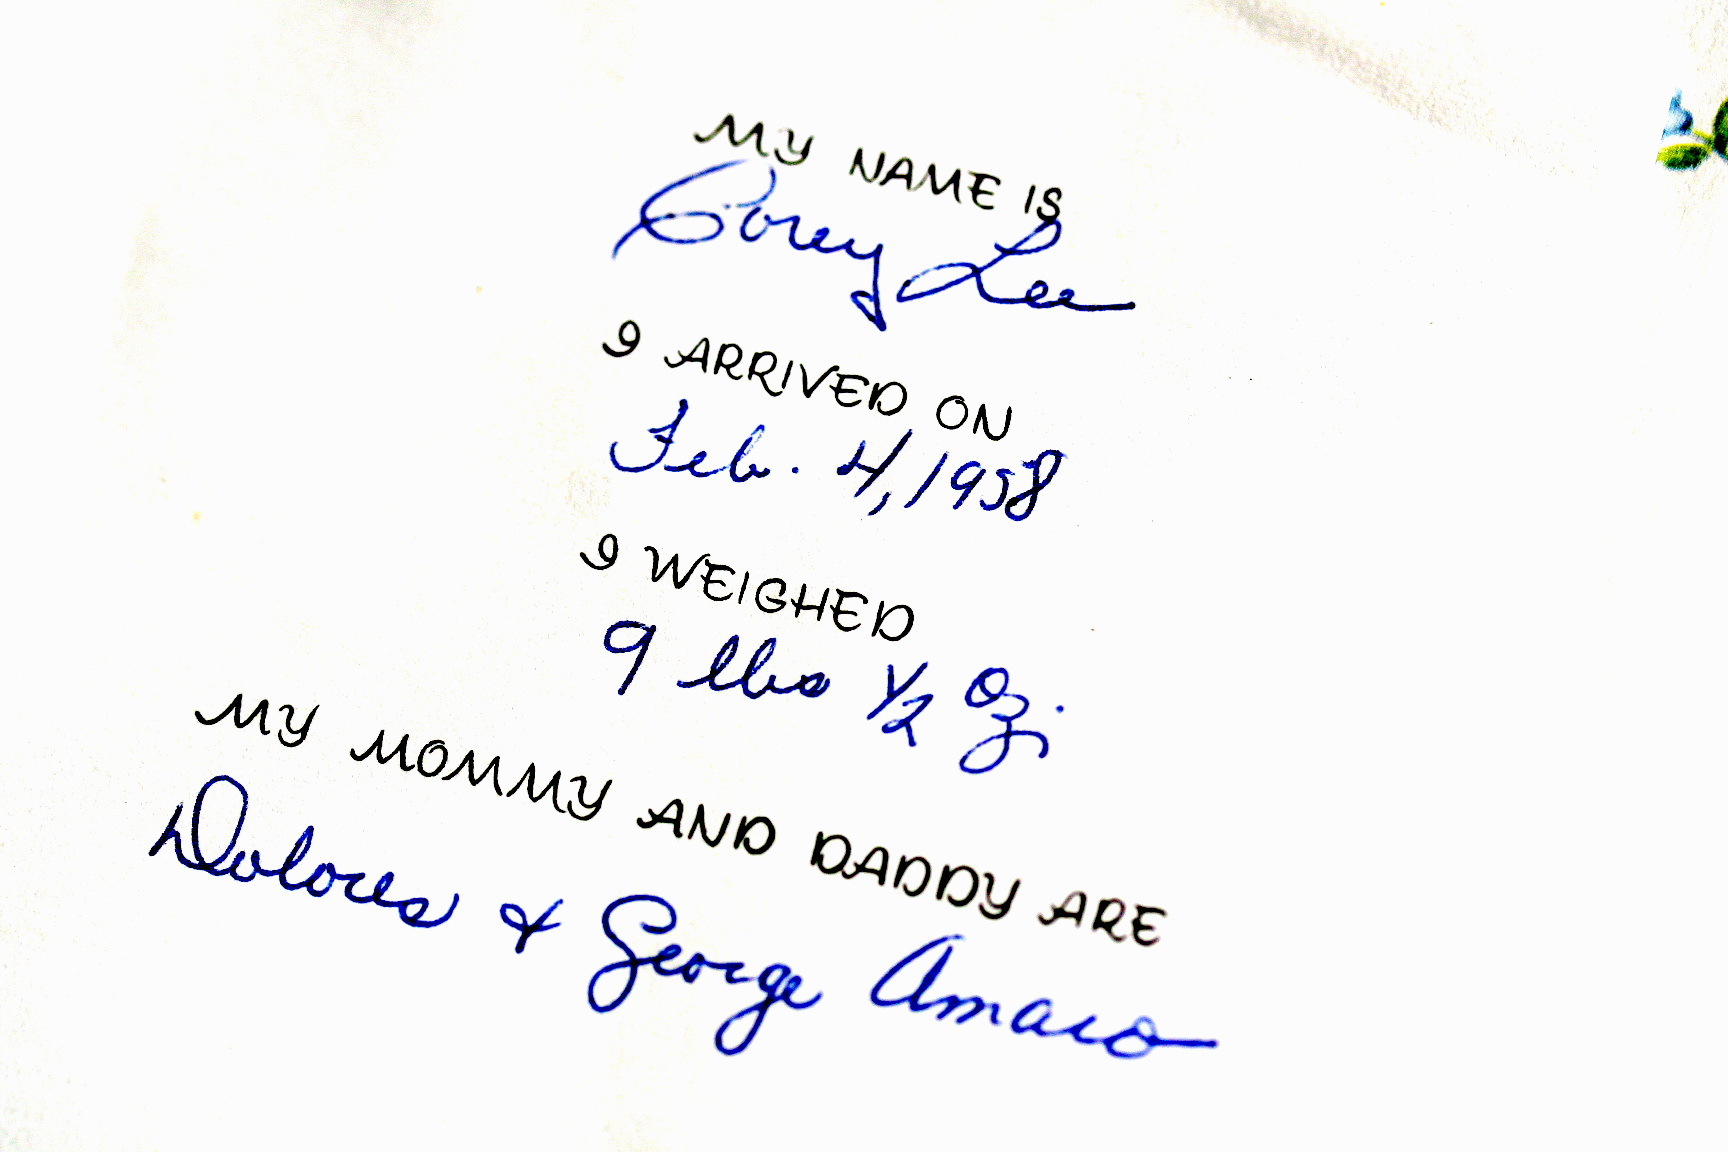 MY NAME IS
Corey Lee
I ARRIVED ON
Feb. 4, 1958
I WEIGHED
9 lbs 1/2 oz.
MY MOMMY AND DADDY ARE
Dolores & George Amaro